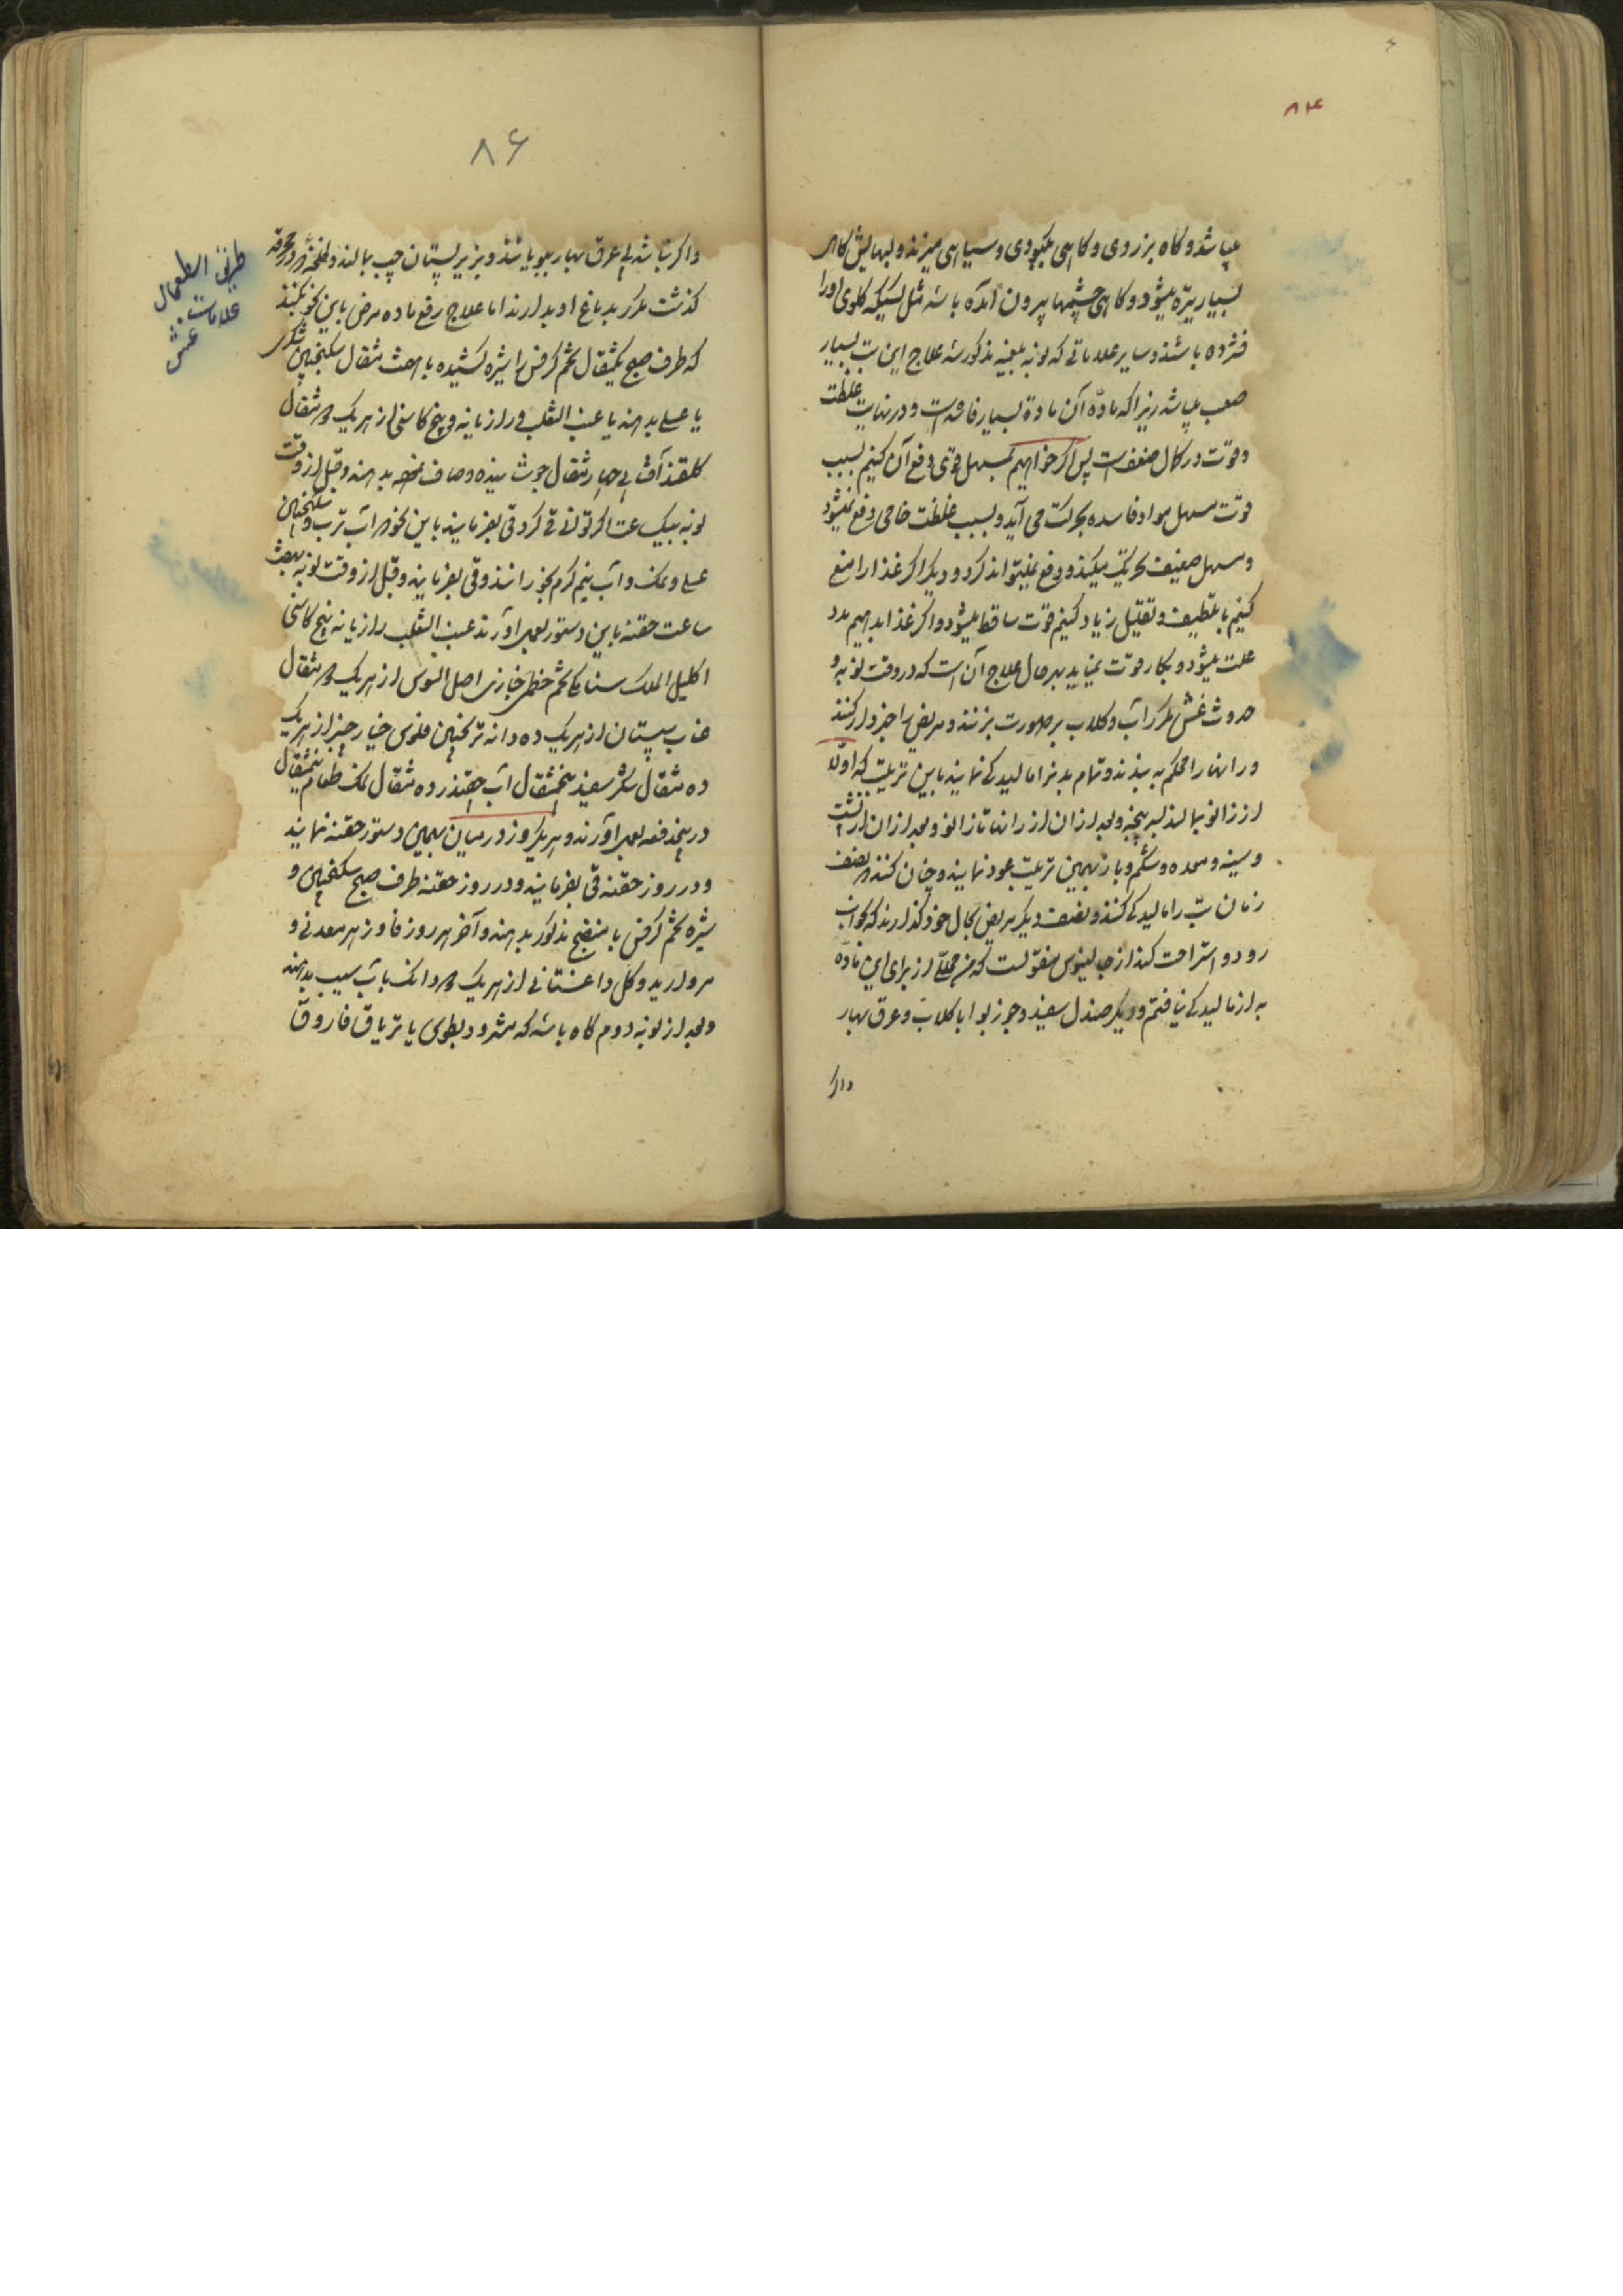 ۸۴
میباشد و گاه بزردی و گاهی بکبودی و سیاهی میزند و لبهایش گاه
بسیار تیره میشود و گاهی چشمها بیرون آمده باشد مثل کسیکه گلوی او را
فشرده باشند و سایر علاماتی که نوبه بلغمیه مذکور شد علاج این تب بسیار
صعب میباشد زیرا که ماده آن ماده بسیار فاسد است و در نهایت غلظت
و قوت در کمال ضعفست پس اگر خواهیم بمسهل قوی دفع آن کنیم بسبب
قوت مسهل مواد فاسده بحرکت می آید و بسبب غلظت خامی دفع نمیشود
و مسهل ضعیف تحریک میکند و دفع نمیتواند کرد و دیگر اگر غذا را منع
کنیم یا بتلطیف و تقلیل زیاد کنیم قوت ساقط میشود و اگر غذا بدهیم مدد
علت میشود و بکار قوت نمیاید بهر حال علاج آن است که در وقت نوبه و
حدوث غش مکرر آب و گلاب بر صورت بزنند و مریض را خبردار کنند
و رانها را محکم به بندند و تمام بدنرا مالیدگی نمایند باین ترتیب که اولا
از زانو بمالند بسر پنجه و بعد از آن از رانها تا زانو و بعد از آن از پشت
و سینه و معده و شکم و باز بهمین ترتیب عود نمایند و چنان کنند که نصف
زمان تب را مالیدگی کنند و نصف دیگر مریض بحال خود گذارند که بخواب
رود و استراحت کند از جالینوس منقولست که من محللی از برای این ماده
به از مالیدگی نیافتم و دیگر صندل سفید و جوز بوا با گلاب و عرق بهار
واگر
۸۶
واگر تب باشد عرق بهار ببویانند و بزیر پستان چپ بمالند و لخلخه که در محرقه
گذشت مکرر بدماغ او بدارند اما علاج رفع ماده مرض باین نحو بکنند
که طرف صبح یکمثقال تخم کرفس را شیره کشیده با هفت مثقال سکنجبین شکری
یا عسلی بدهند یا عنب الثعلب و رازیانه و بیخ کاسنی از هر یک دو مثقال
گلقند آفتابی چهار مثقال جوشانیده و صاف نموده بدهند و قبل از وقت
نوبه بیکساعت اگر توانائی قی کردن قی بفرمایند باین نحو که آب ترب و سکنجبین
عسلی و نمک و آب نیم گرم بخورانند و قی بفرمایند و قبل از وقت نوبه بهفت
ساعت حقنه باین دستور بعمل آورند عنب الثعلب رازیانه بیخ کاسنی
اکلیل الملک سنا مکی تخم خطمی خبازی اصل السوس از هر یک دو مثقال
عناب سپستان از هر یک ده دانه ترنجبین فلوس خیار چنبر از هر یک
ده مثقال شکر سفید پنجمثقال آب چقندر ده مثقال نمک طعام نیمثقال
در پنجدفعه بعمل آورند و هر یکروز در میان بهمین دستور حقنه نمایند
و در روز حقنه قی بفرمایند و در روز حقنه طرف صبح سکنجبین و
شیره تخم کرفس یا منضج مذکور بدهند و آخر هر روز فاد زهر معدنی و
مروارید و گل داغستانی از هر یک دو دانک با آب سیب بدهند
و بعد از نوبه دوم گاه باشد که مثرودیطوس یا تریاق فاروق
طریق استعمال
علامات
غش